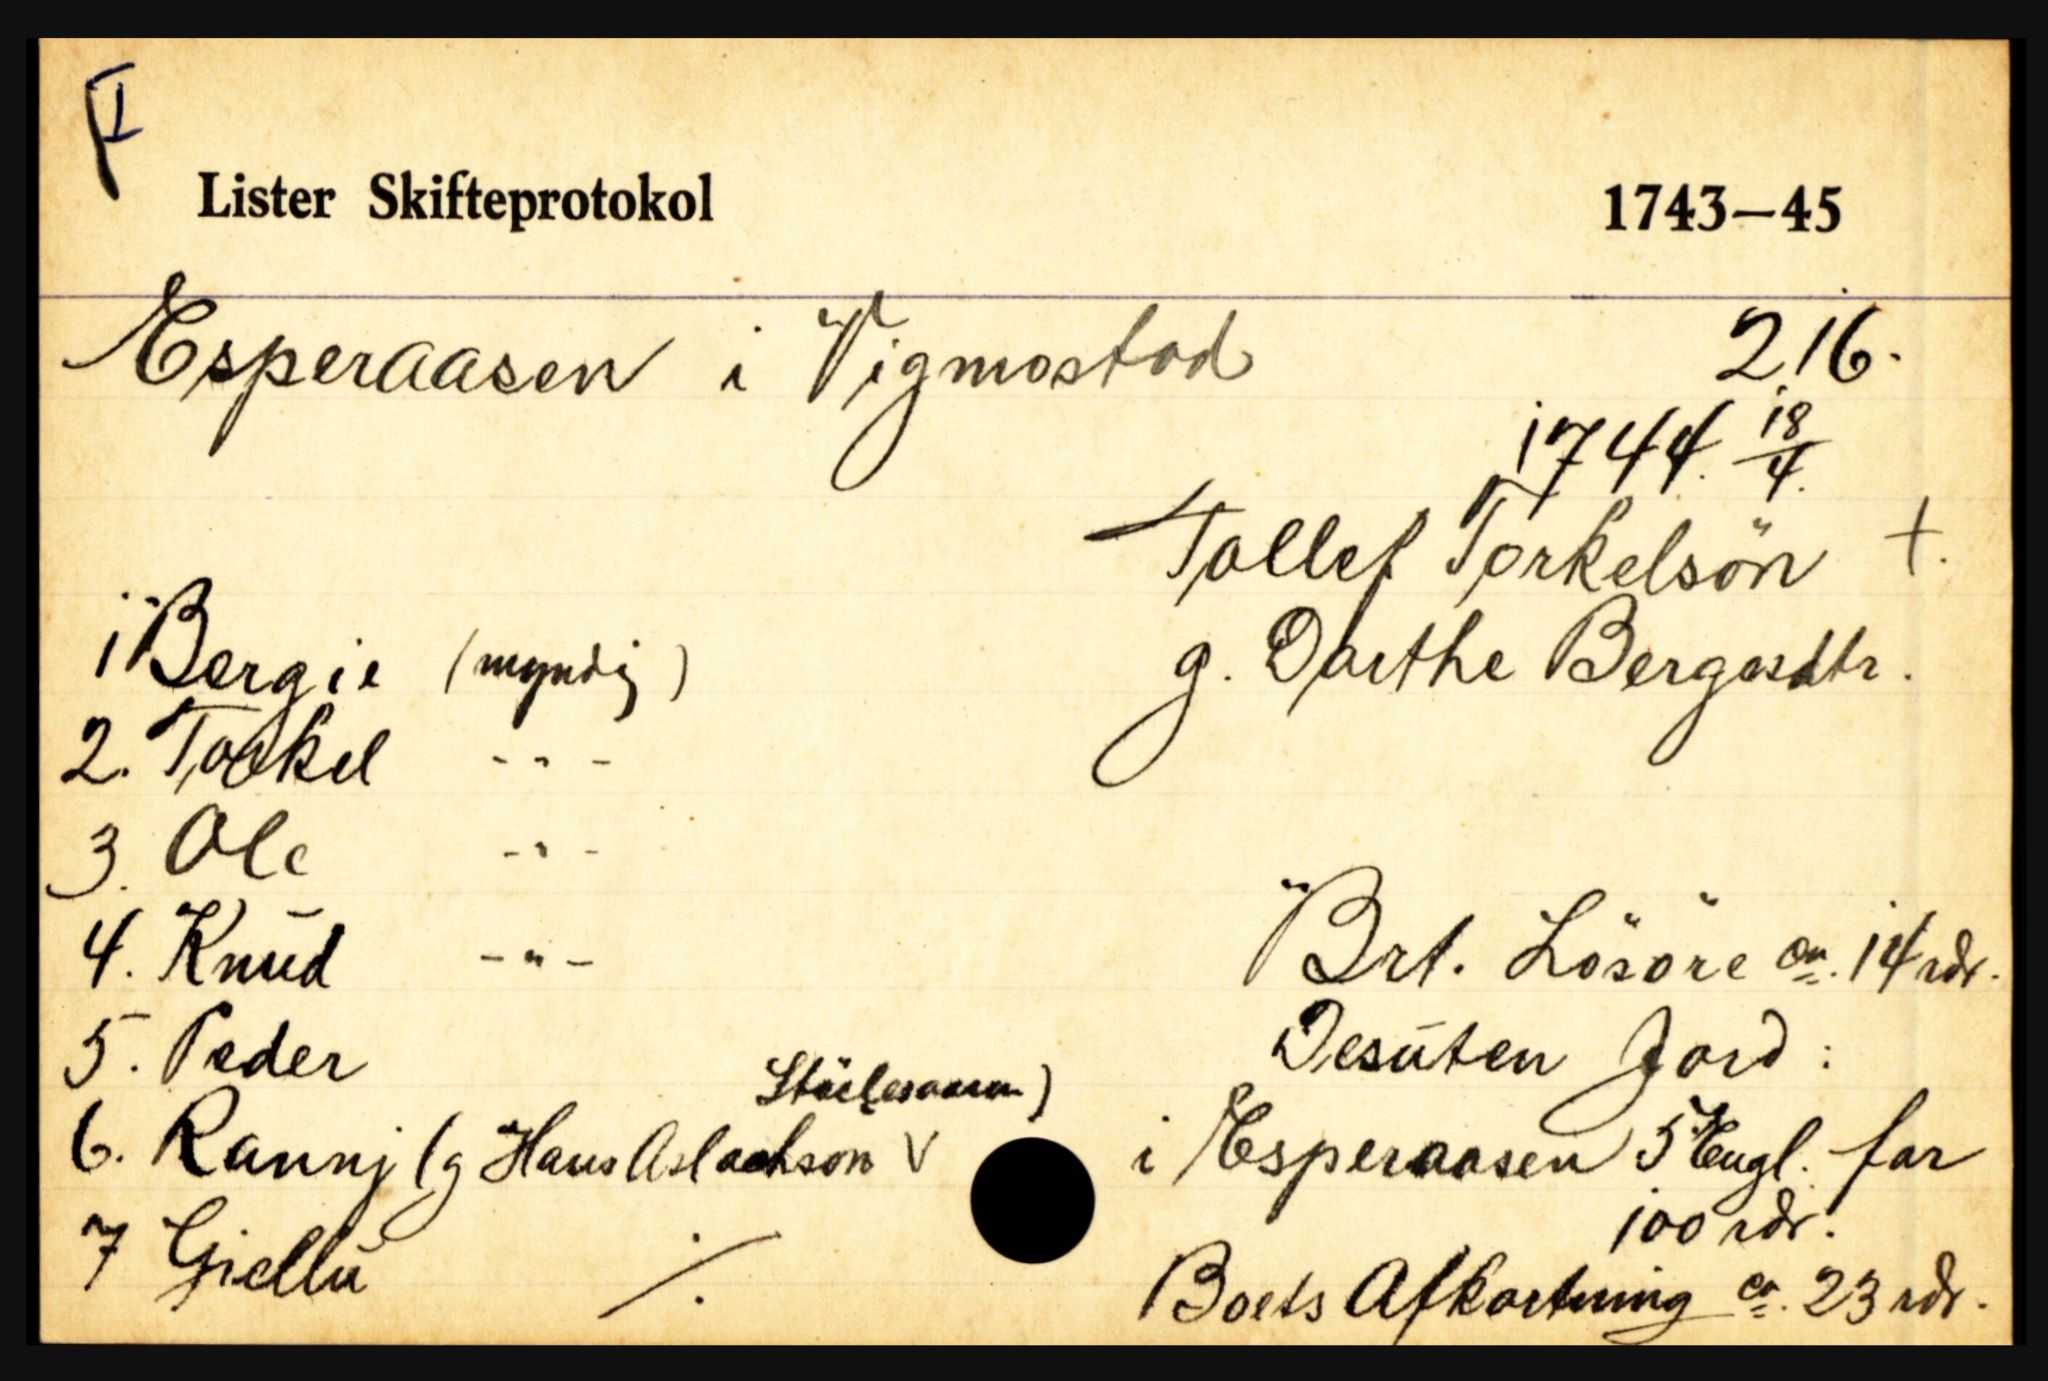 I
Lister Skifteprotokol 1743—45
Esperaasen i Vigmostad 216.
1744. 18/4.
Tollef Torkelsön +.
g. Dorthe Bergesdtr.
1 Bergie (myndig)
2. Torkel -"-
3. Ole -"-
4. Knud -"-
5. Peder
6. Rannj (g Hans Aslachson V
7 Giellu ./.
Brt. Lösöre ca. 14 rdr.
Desuten Jord:
i Esperaasen 5 Engl. for
100 rdr.
Boets Afkortning ca. 23 rdr.